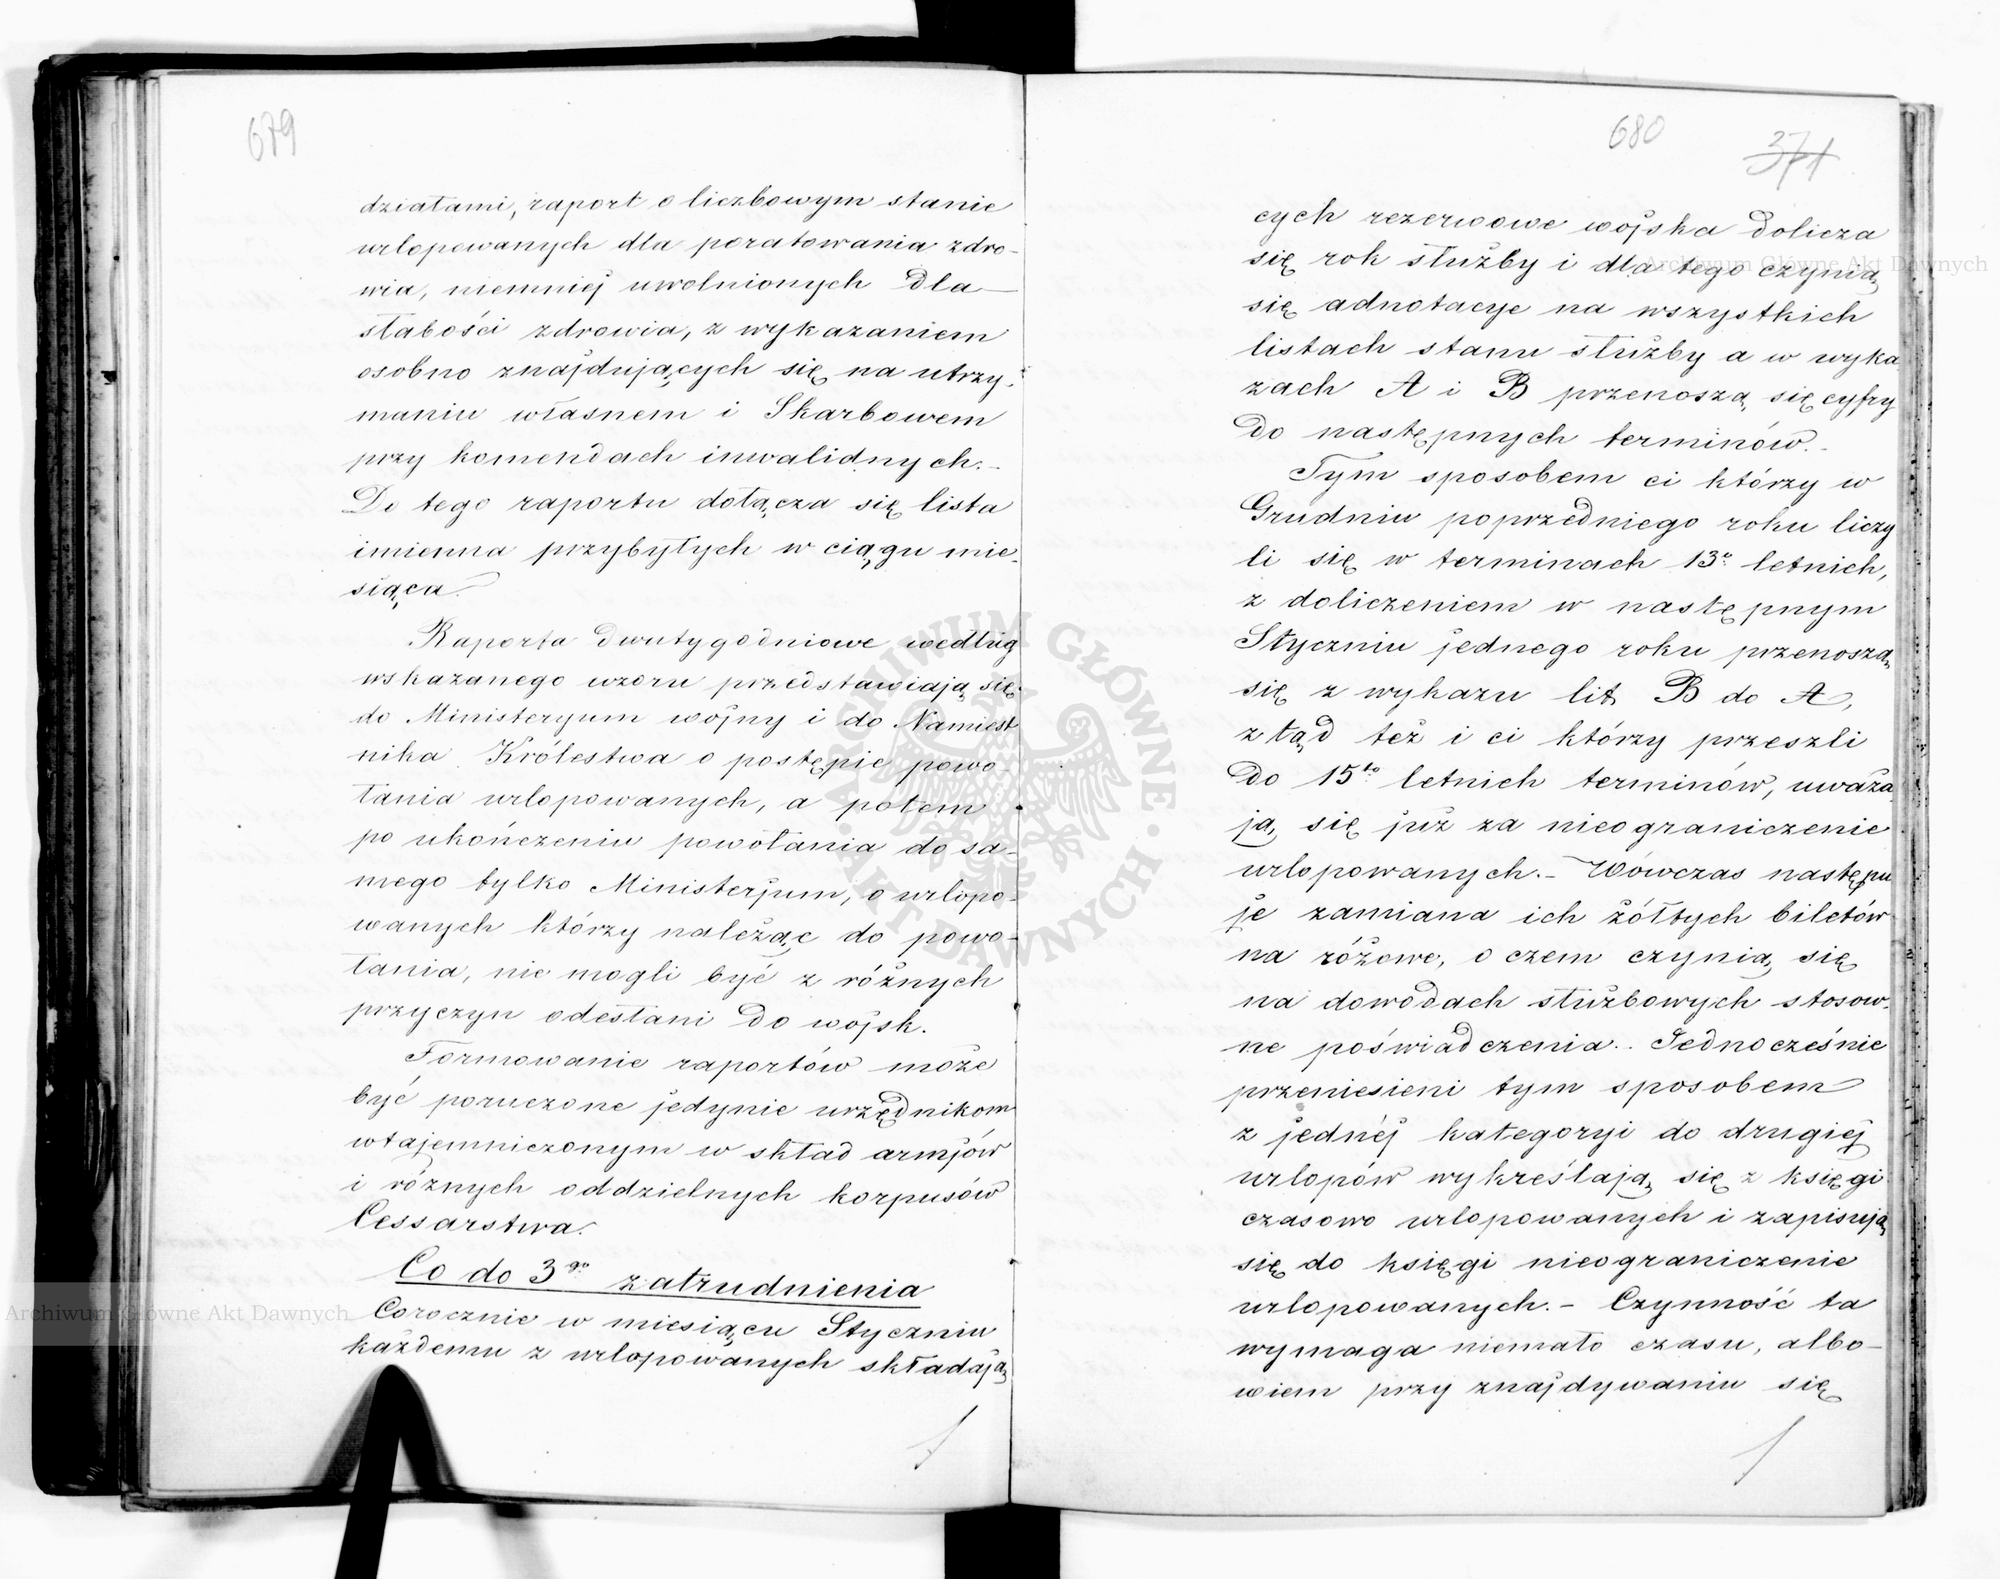 679
działami, raport o liczbowym stanie
urlopowanych dla poratowania zdro-
wia, niemniej uwolnionych dla
słabości zdrowia, z wykazaniem
osobno znajdujących się na utrzy-
maniu własnem i Skarbowem
przy komendach inwalidnych.-
Do tego raportu dołącza się lista
imienna przybyłych w ciągu mie-
siąca.
Raporta dwutygodniowe według
wskazanego wzoru przedstawiają się
do Ministeryum wojny i do Namiest
nika Królestwa o postępie powo-
łania urlopowanych, a potem
po ukończeniu powołania do sa-
mego tylko Ministerjum, o urlopo-
wanych którzy należąc do powo-
łania, nie mogli być z różnych
przyczyn odesłani do wojsk.
Formowanie raportów może
być poruczone jedynie urzędnikom
wtajemniczonym w skład armjów
i różnych oddzielnych korpusów
Cessarstwa.
Co do 3go zatrudnienia
Corocznie w miesiącu Styczniu
każdemu z urlopowanych składają
680
371
cych rezerwowe wojska dolicza
się rok służby i dla tego czynią
się adnotacye na wszystkich
listach stanu służby a w wyka
zach A i B przenoszą się cyfry
do następnych terminów.-
Tym sposobem ci którzy w
Grudniu poprzedniego roku liczy
li się w terminach 13o letnich,
z doliczeniem w następnym
Styczniu jednego roku przenoszą
się z wykazu lit B do A,
ztąd też i ci którzy przeszli
do 15to letnich terminów, uważa
ją się już za nieograniczenie
urlopowanych.- Wówczas następu
je zamiana ich żółtych biletów
na różowe, o czem czynią się
na dowodach służbowych stosow-
ne poświadczenia.. Jednocześnie
przeniesieni tym sposobem
z jednéj kategoryi do drugiéj
urlopów wykreślają się z księgi
czasowo urlopowanych i zapisują
się do księgi nieograniczenie
urlopowanych.- Czynność ta
wymaga niemało czasu, albo-
wiem przy znajdywaniu się
Archiwum Główne Akt Dawnych
Archiwum Główne Akt Dawnych
ARCHIWUM GŁÓWNE · AKT DAWNYCH ·